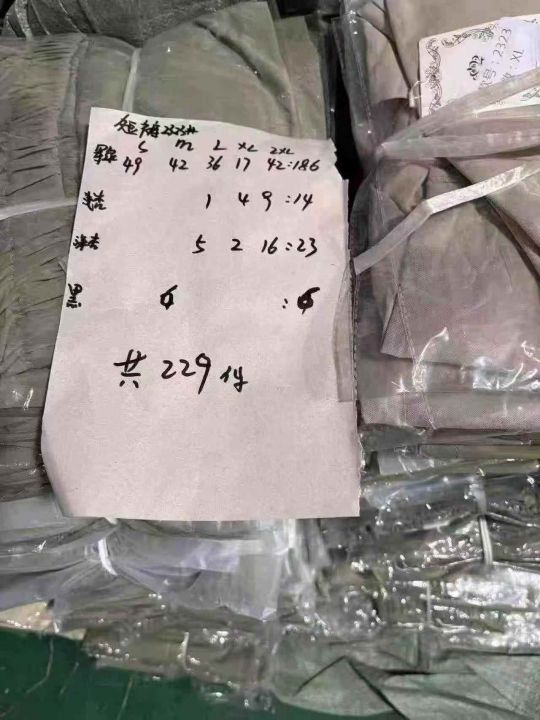 短袖2323#
S M L XL 2XL
49 42 36 17 42:186
1 4 9 :14
5 2 16:23
黑 6 :6
共 229 件
号:2323
:XL